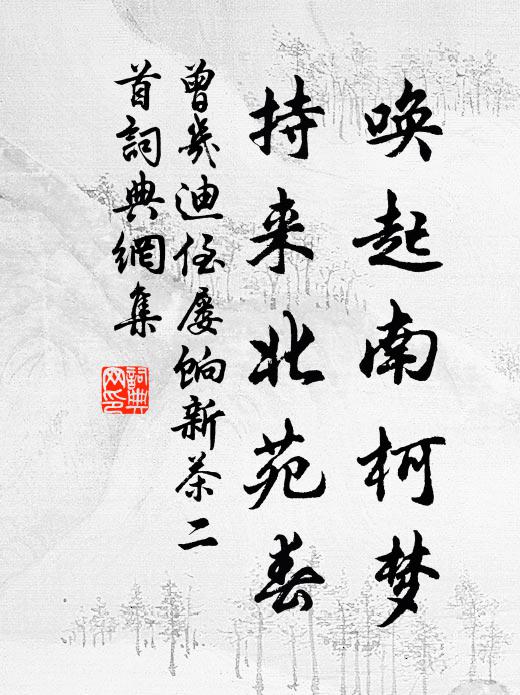 唤起南柯梦
持来北苑春
曾几迪侄屡饷新茶二
首词典網集
詞典網印